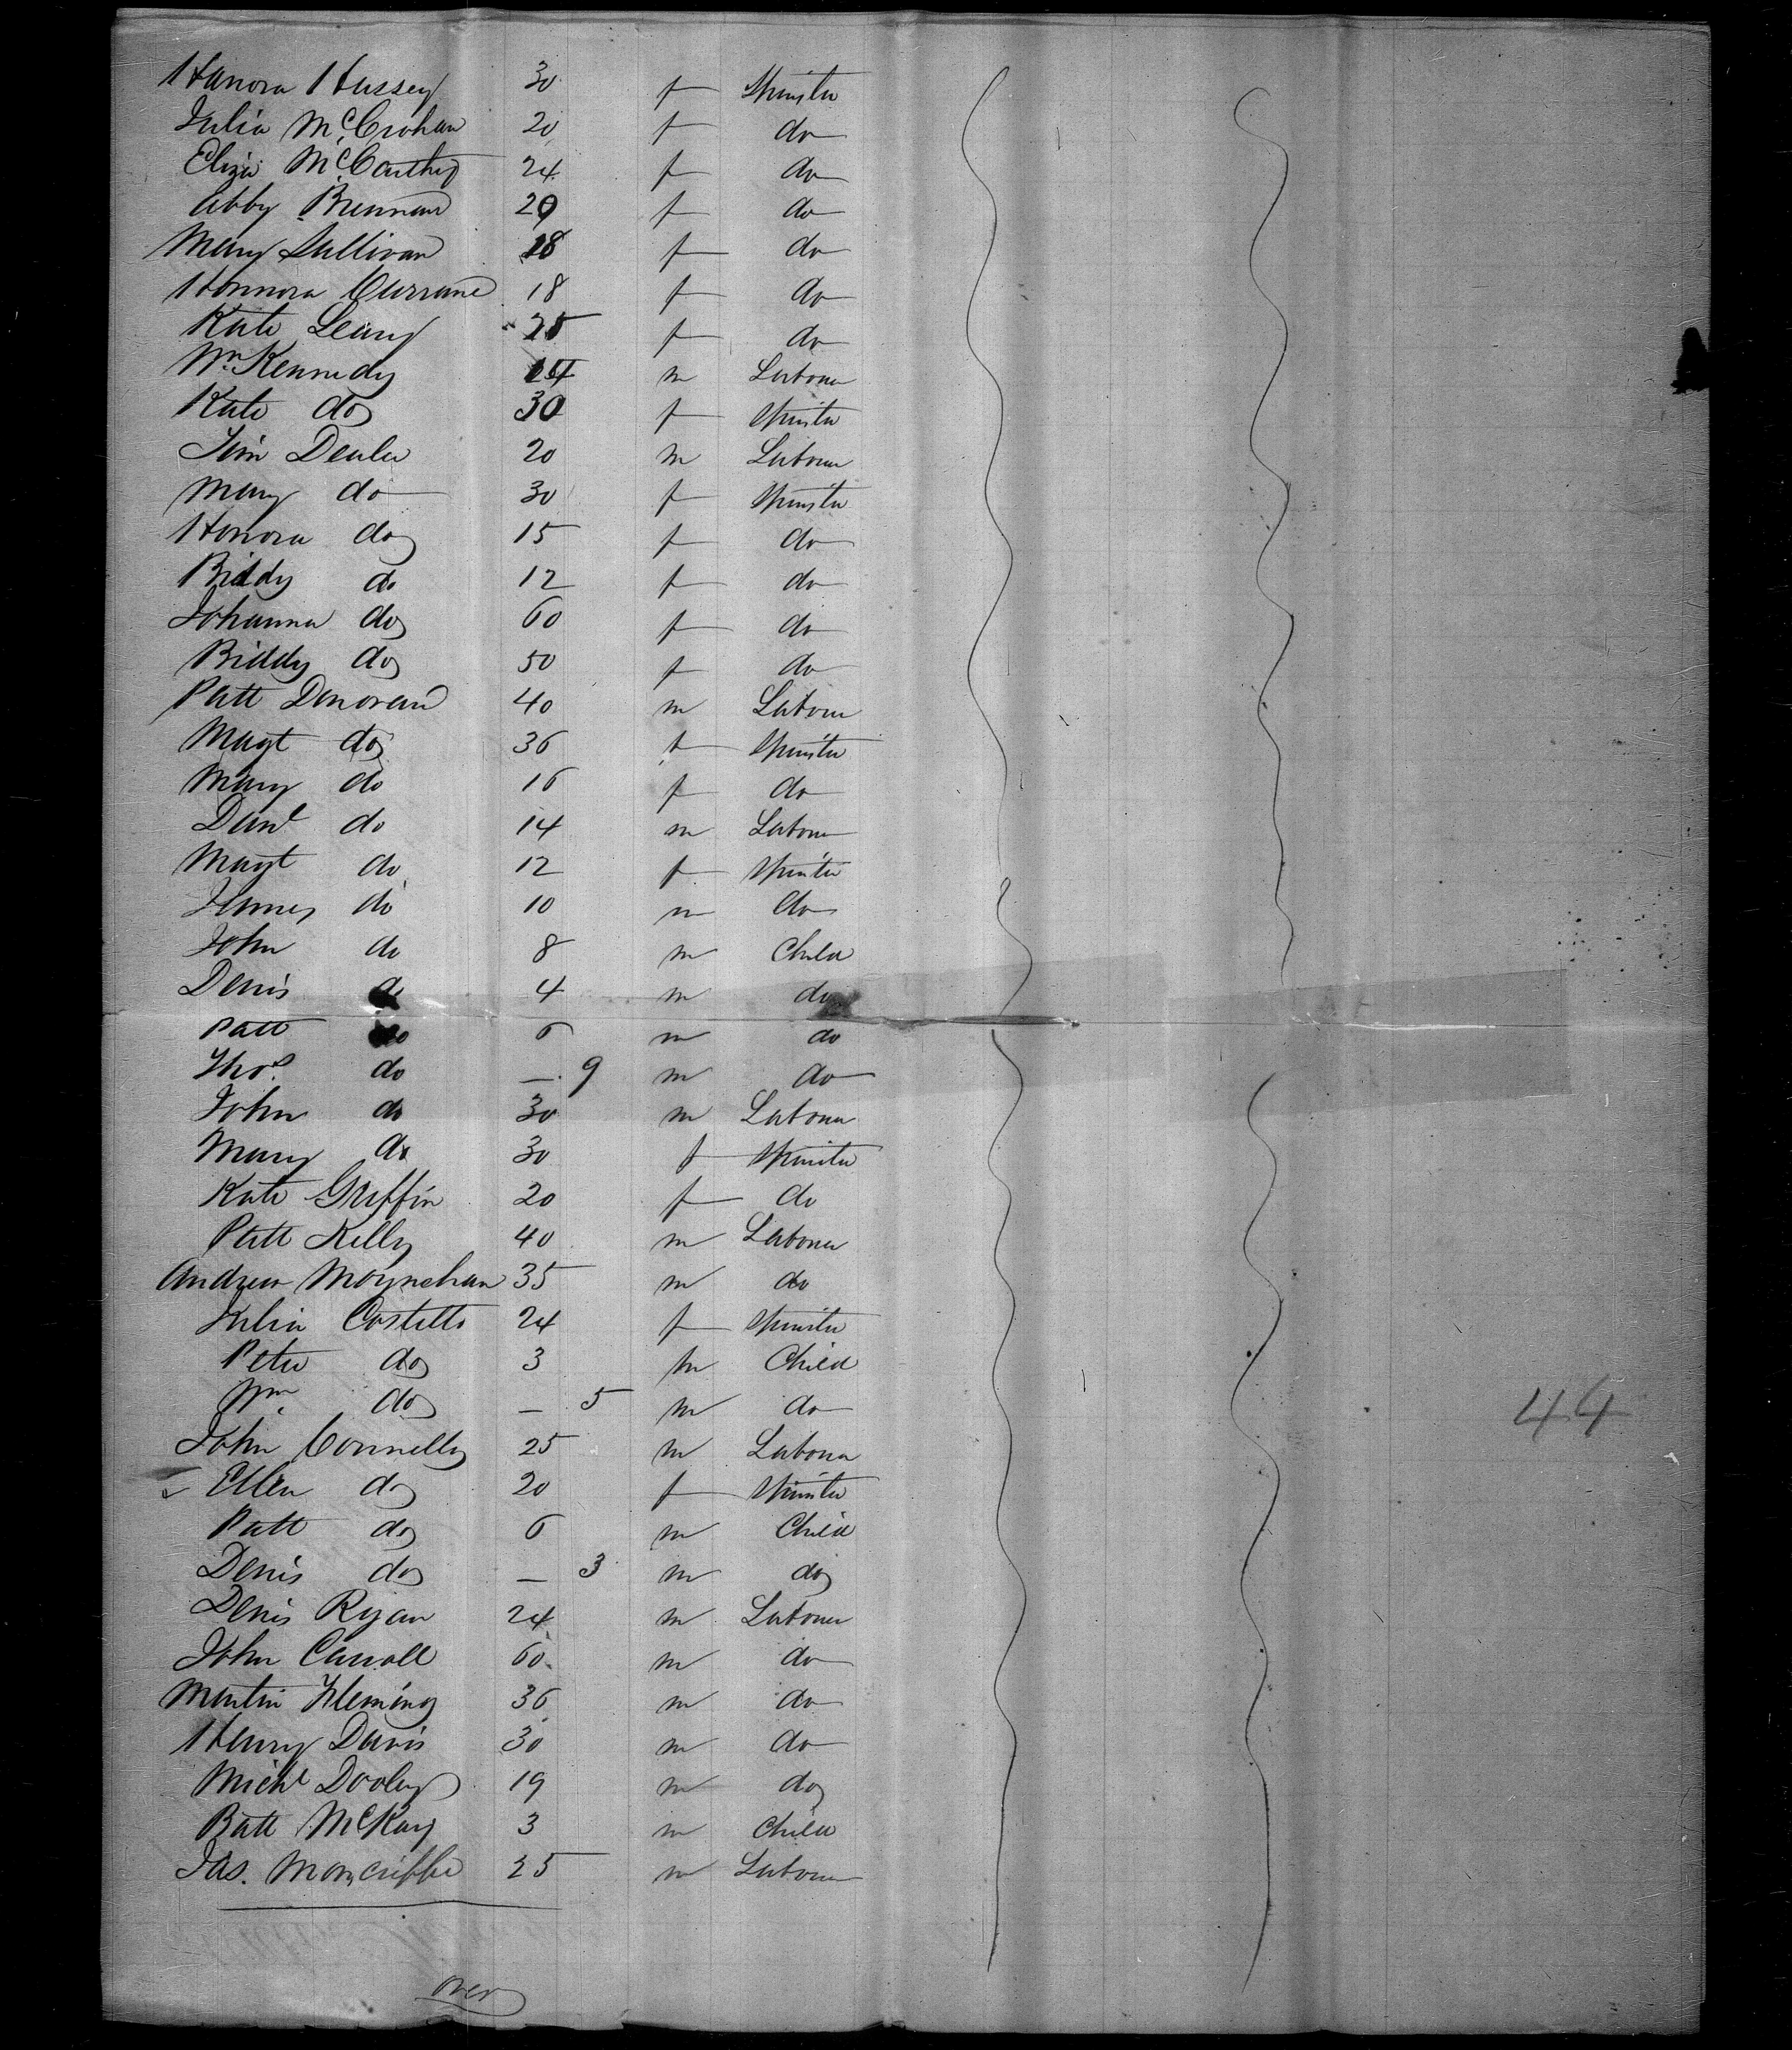 Hanora Hussey 30 f Spinster
Julia McCrohan 20 f do
Eliza McCarthy 24 f do
Abby Brennan 29 f do
Mary Sullivan 18 f do
Honnora Currane 18 f do
Kate Leary 25 f do
Wm. Kennedy 24 m Labourer
Kate do 30 f Spinster
Tim 20 m Labourer
Mary do 30 f Spinster
Honora do 15 f do
Biddy do 12 f do
Johanna do 60 f do
Biddy do 50 f do
Patt Donovan 40 m Labourer
Magt do 36 f Spinster
Mary do 16 f do
Danl do 14 m Labourer
Magt do 12 f Spinster
James do 10 m do
John do 8 m Child
Denis do 4 m do
Patt do 6 m do
Thos. do — 9 m do
John do 30 m Labourer
Mary do 30 f Spinster
Kate Griffin 20 f do
Patt Kelly 40 m Labourer
Andrew Moynehan 35 m do
Julia Costello 24 f Spinster
Peter do 3 m Child
Wm. do — 5 m do
John Connelly 25 m Labourer
Ellen do 20 f Spinster
Patt do 6 m Child
Denis do — 3 m do
Denis Ryan 24 m Labourer
John Carroll 60 m do
Martin Fleming 36 m do
Henry Davis 30 m do
Michl Dooley 19 m do
Batt McKay 3 m Child
Jas. Moncriffe 25 m Labourer
over
44